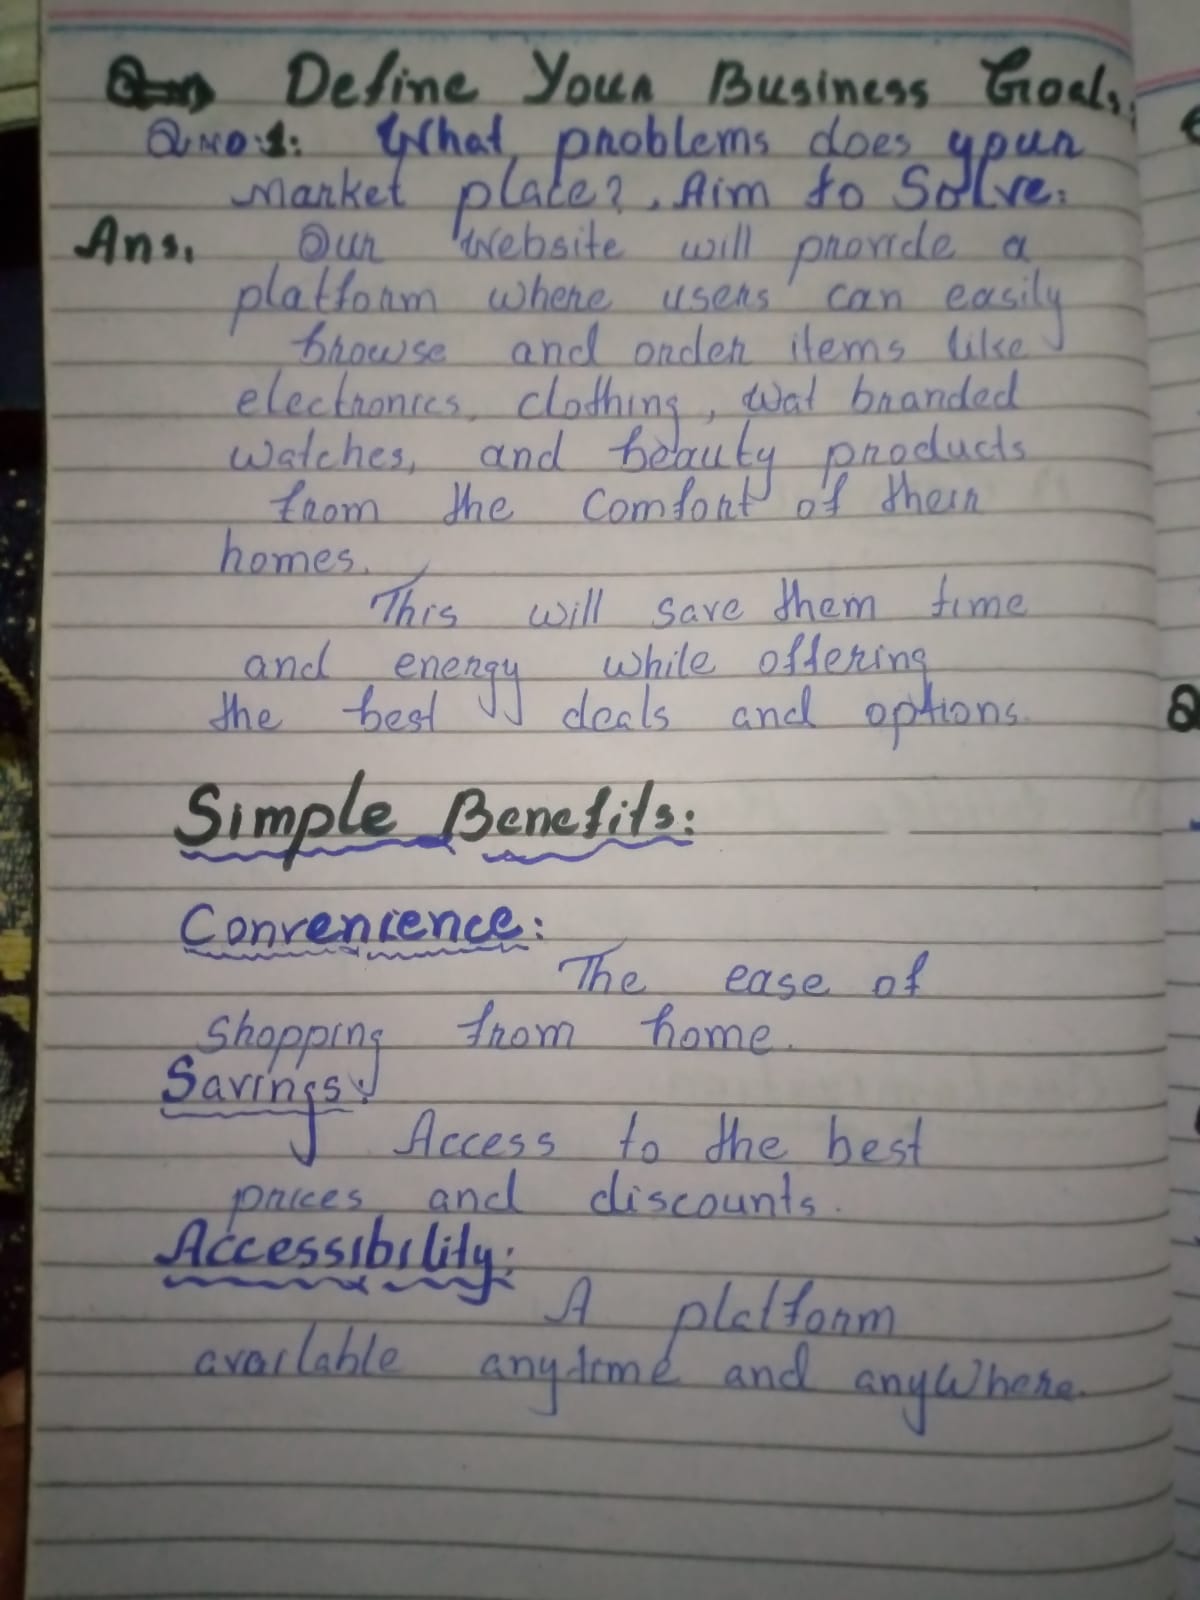 Q⇒ Define Your Business Goals:
Q.NO.1: What problems does your
market place?. Aim to Solve:
Ans. Our website will provide a
platform where users can easily
browse and order items like
electronics, clothing, wat branded
watches, and beauty products
from the comfort of their
homes.
This will save them time
and energy while offering
the best deals and options.
Simple Benefits:
Convenience:
The ease of
shopping from home.
Savings:
Access to the best
prices and discounts.
Accessibility:
A platform
available anytime and anywhere.